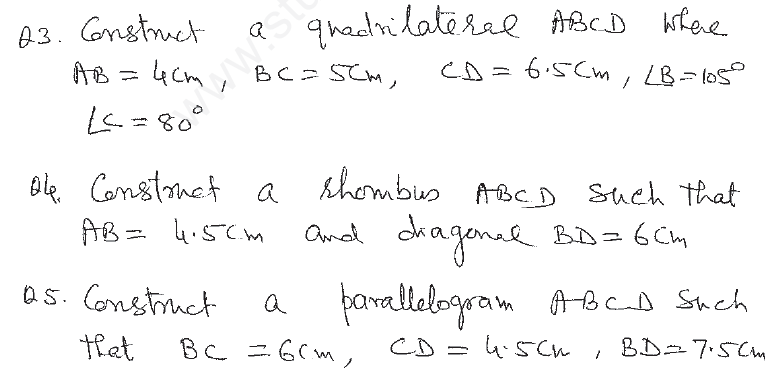 Q3. Construct a quadrilateral ABCD where
AB = 4cm, BC = 5cm, CD = 6.5cm, ∠B = 105°
∠C = 80°
Q4. Construct a rhombus ABCD such that
AB = 4.5cm and diagonal BD = 6cm
Q5. Construct a parallelogram ABCD such
that BC = 6cm, CD = 4.5cm, BD = 7.5cm